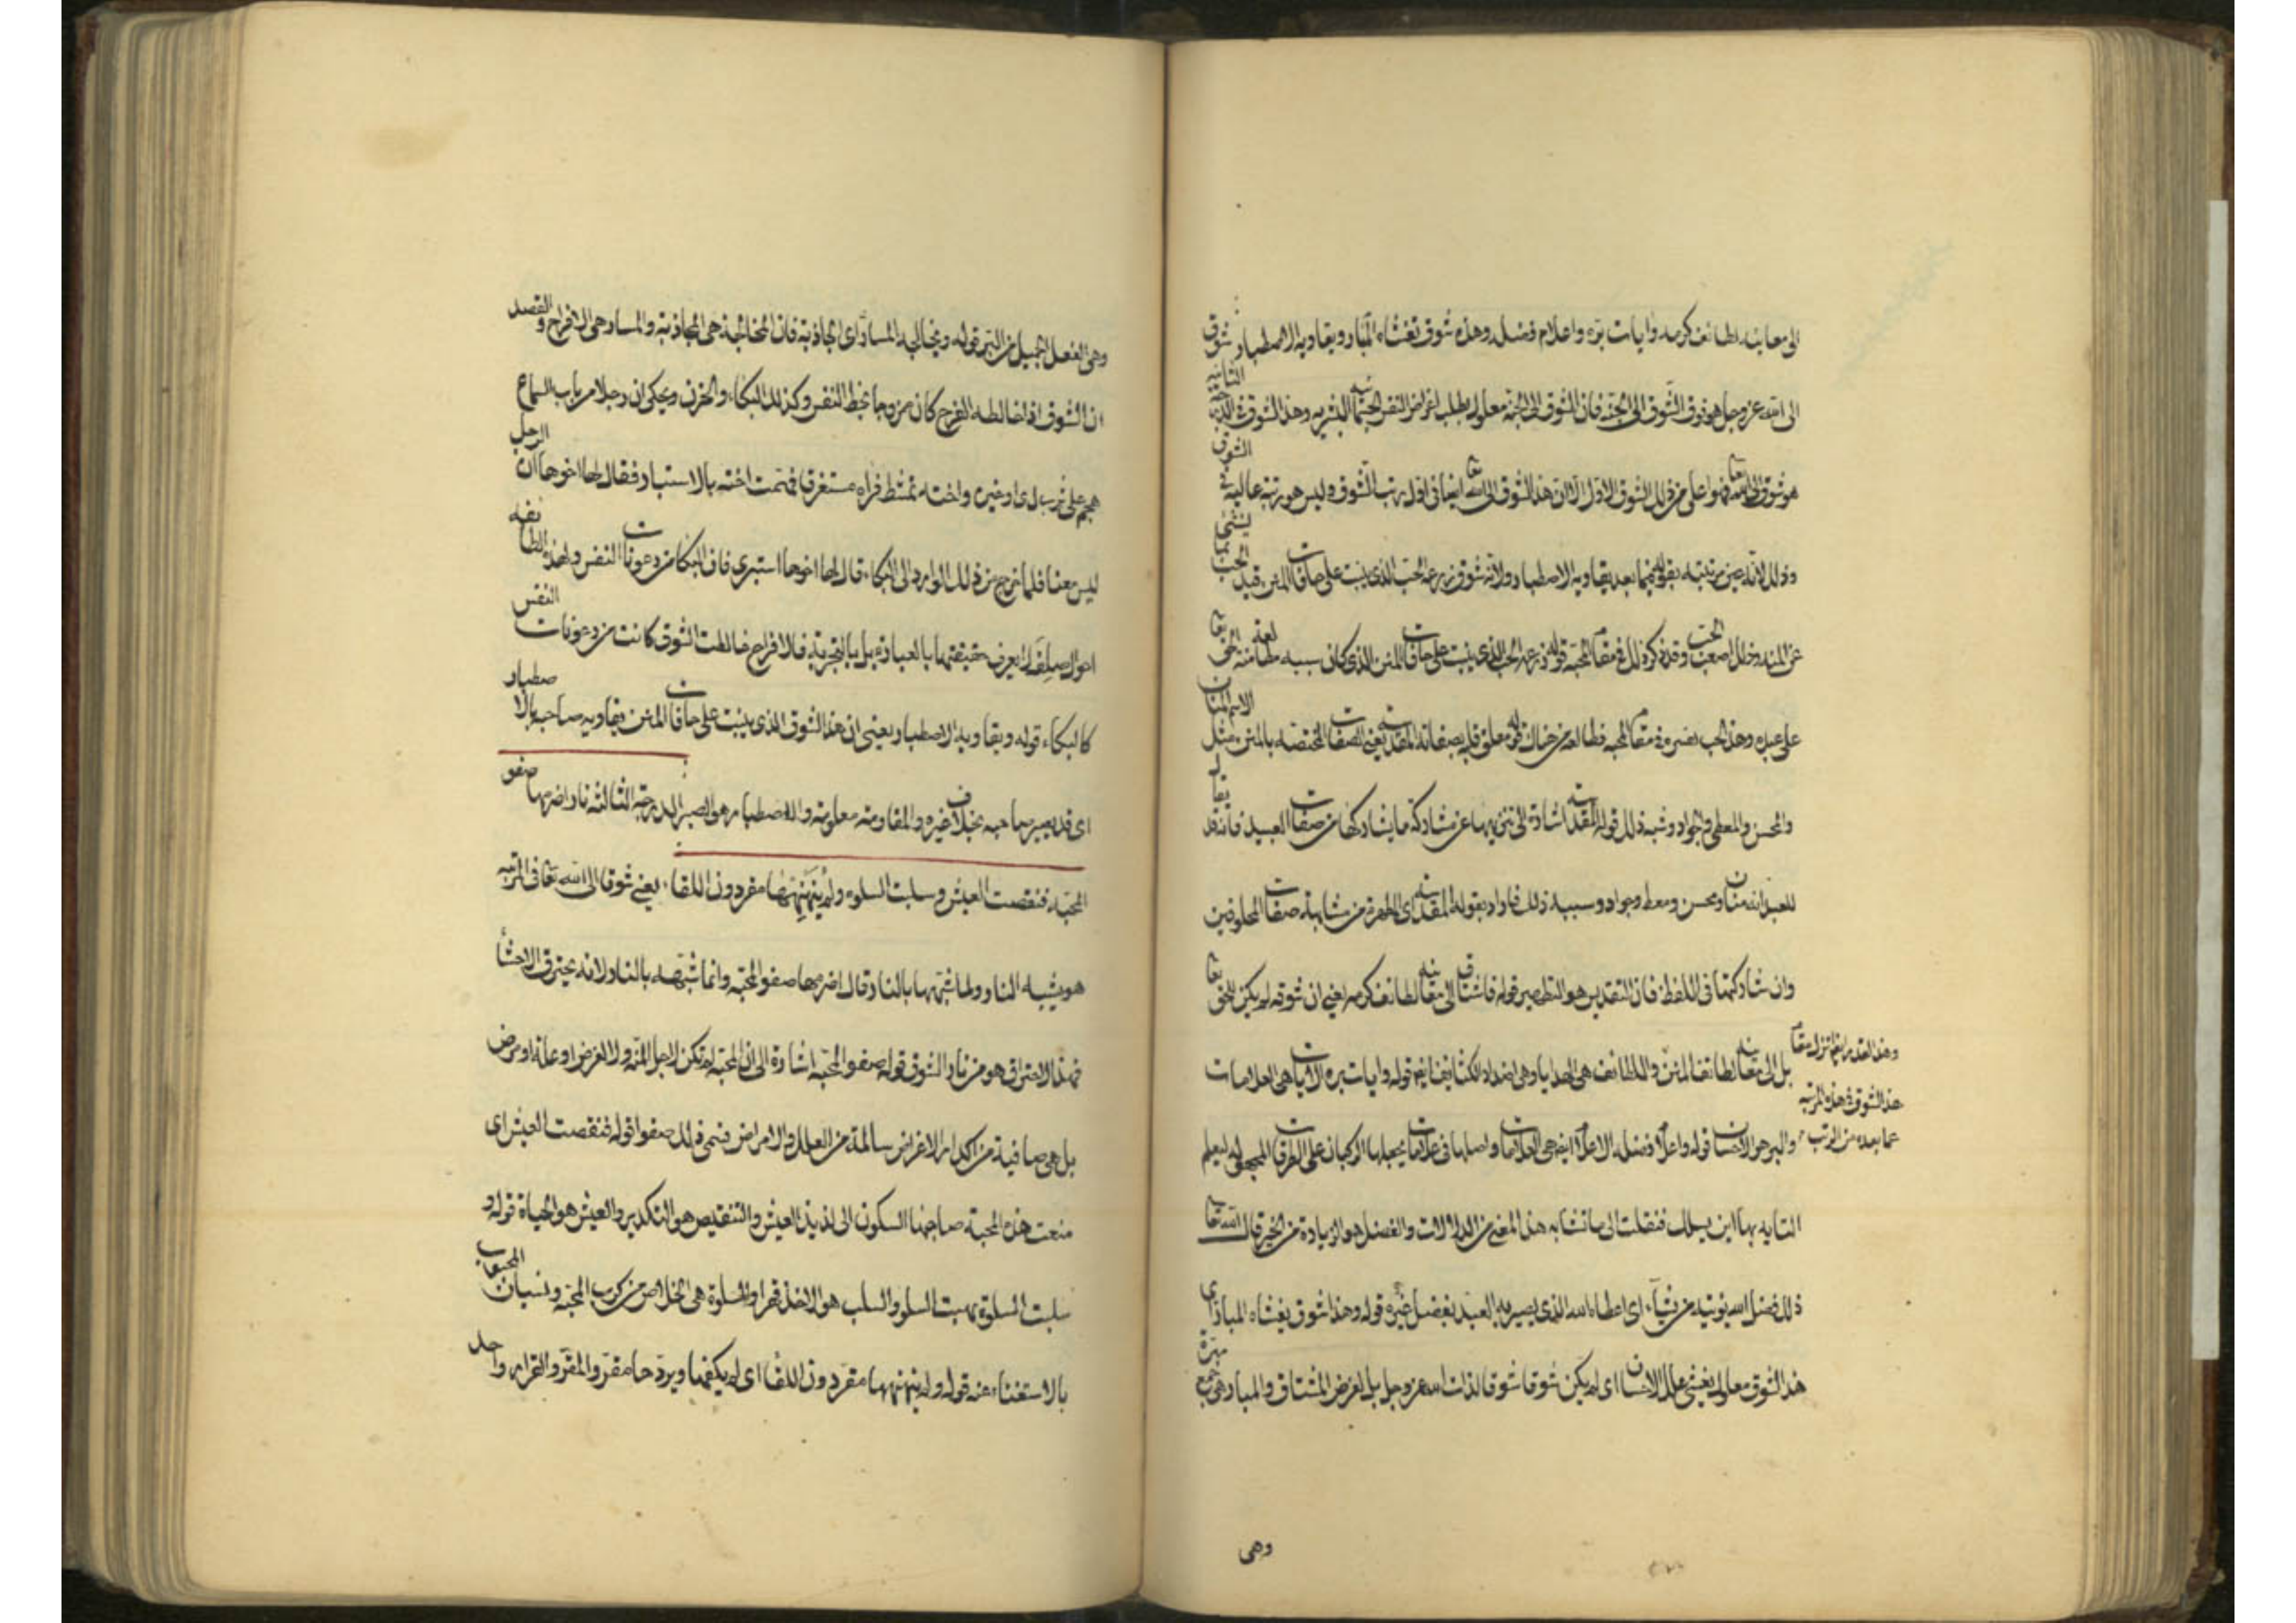 الى معاينة لطائف كرمه وايات بره واعلام فضله وهذه شوق تغشاه المبار ويقاويه الاصطبار شوق
الى الله عز وجل هو فوق الشوق الى الجنة فان الشوق الى الجنة معلول بطلب اغراض النفس الجثمانية البشرية وهذا الشوق في الثانية
هو شوق الى الله تعا فهو اعلى من ذلك الشوق الاول الا ان هذا الشوق الى الله تعا ايضا في اول رتب الشوق وليس هو رتبة عالية في الشوق
وذلك لانه عين مرتبته بقوله فيما بعد يقاويه الاصطبار ولانه شوق زرعه الحب الذي ينبت على حافات المنن
عن المنة وذلك اضعف الحب وقد ذكر ذلك في مقام المحبة قوله زرعه الحب الذي ينبت على حافات المنن الذي كان سببه مطالعة منة الحق تعا
على عبده وهذا الحب نفسره في مقام المحبة فطالعه من هناك قوله معلق قلبه بصفاته المقدسة يعني الصفات المختصة بالمنن مثل الاسم المنان
والمحسن والمعطي والجواد وشبه ذلك قوله المقدسة اشارة الى تنزيهها عن مشاركة ما يشاركها من صفات العبيد فانه قد يقال
للعبد انه منان ومحسن ومعط وجواد وسبب ذلك فاراد بقوله المقدسة اي المطهرة من مشابهة صفات المخلوقين
وان شاركتها في اللفظ فان التقديس هو التطهير قوله فاشتاق الى معاينة لطائف كرمه يعني ان شوقه لم يكن للحق تعا
بل الى معاينة لطائف المنن واللطائف هي الهدايا وهي اضداد الكثائف ايضا قوله وايات بره الايات هي العلامات
والبر هو الاحسان قوله واعلام فضله الاعلام ايضا هي العلامات واصلها في علامات يجعلها الركبان على الطرقات المجهولة ليعلم
التايه بها اين يسلك فنقلت الى ما تشابه هذا المعنى من الدلالات والفضل هو الزيادة من الخير قال الله تعا
ذلك فضل الله يوتيه من يشاء اي عطاء الله الذي يصير به العبد يفضل غيره قوله وهذا شوق يغشاه المبار اي
هذا الشوق معلول يغشي علل الاحسان اي لم يكن شوقا لذات الله عز وجل بل لغرض المشتاق والمبار هي جمع مبرة
وهذا القدر
هذا الشوق في هذه المرتبة
عما بعده من الرتب
وهي
وهي الفعل الجميل من البر قوله ويخالجه المسار اي تجاذبه فان المخالجة هي المجاذبة والمسار هي الافراح والقصد
ان الشوق اذا خالطه الفرح كان ممزوجا بحظ النفس وكذلك البكاء والحزن ويحكى ان رجلا من باب السماع
هجم على واخته تمشط فراه مستغرقا فهمت اخته بالاستتار فقال لها اخوها ان الرجل
ليس معنا فلما خرج من ذلك الوارد الى البكاء قال لها اخوها استتري فان البكا من رعونات النفس ولهذه الطائفة
احوال لا يعرف حقيقتها بالعبارة بل بالتجربة فالافراح خالطت الشوق كانت من رعونات النفس
كالبكاء قوله ويقاويه الاصطبار يعني ان هذا الشوق الذي ينبت على حافات المنن يقاويه صاحبه بالاصطبار
اي قد يصبر صاحبه بخلاف غيره والمقاومة معلومة والاصطبار هو الصبر الدرجة الثالثة نار اضرمها صفو
المحبة فنغصت العيش وسلبت السلوة ولم ينهنهها مقر دون اللقاء يعني شوقا الى الله تعا في المرتبة
هو يشبه النار ولما شبهها بالنار قال اضرمها صفو المحبة وانما شبهه بالنار لانه يحترق الاحشا
فهذا الاحتراق هو من نار الشوق قوله صفو المحبة اشارة الى ان المحبة لم تكن لاجل المنة ولا لغرض او علة او مرض
بل هي صافية من اكدار الاغراض سالمة من العلل والامراض فسمي ذلك صفوا قوله فنغصت العيش اي
منعت هذه المحبة صاحبها السكون الى لذيذ العيش والتنغيص هو التكدير والعيش هو الحياة قوله و
سلبت السلوة نهبت السلو والسلب هو الاخذ قهرا والسلوة هي الخلاص من كرب المحبة ونسيان المحبوب
بالاستغناء عنه قوله ولم ينهنهها مقر دون اللقا اي لم يكفها ويردها مقر والمقر والقرار واحد